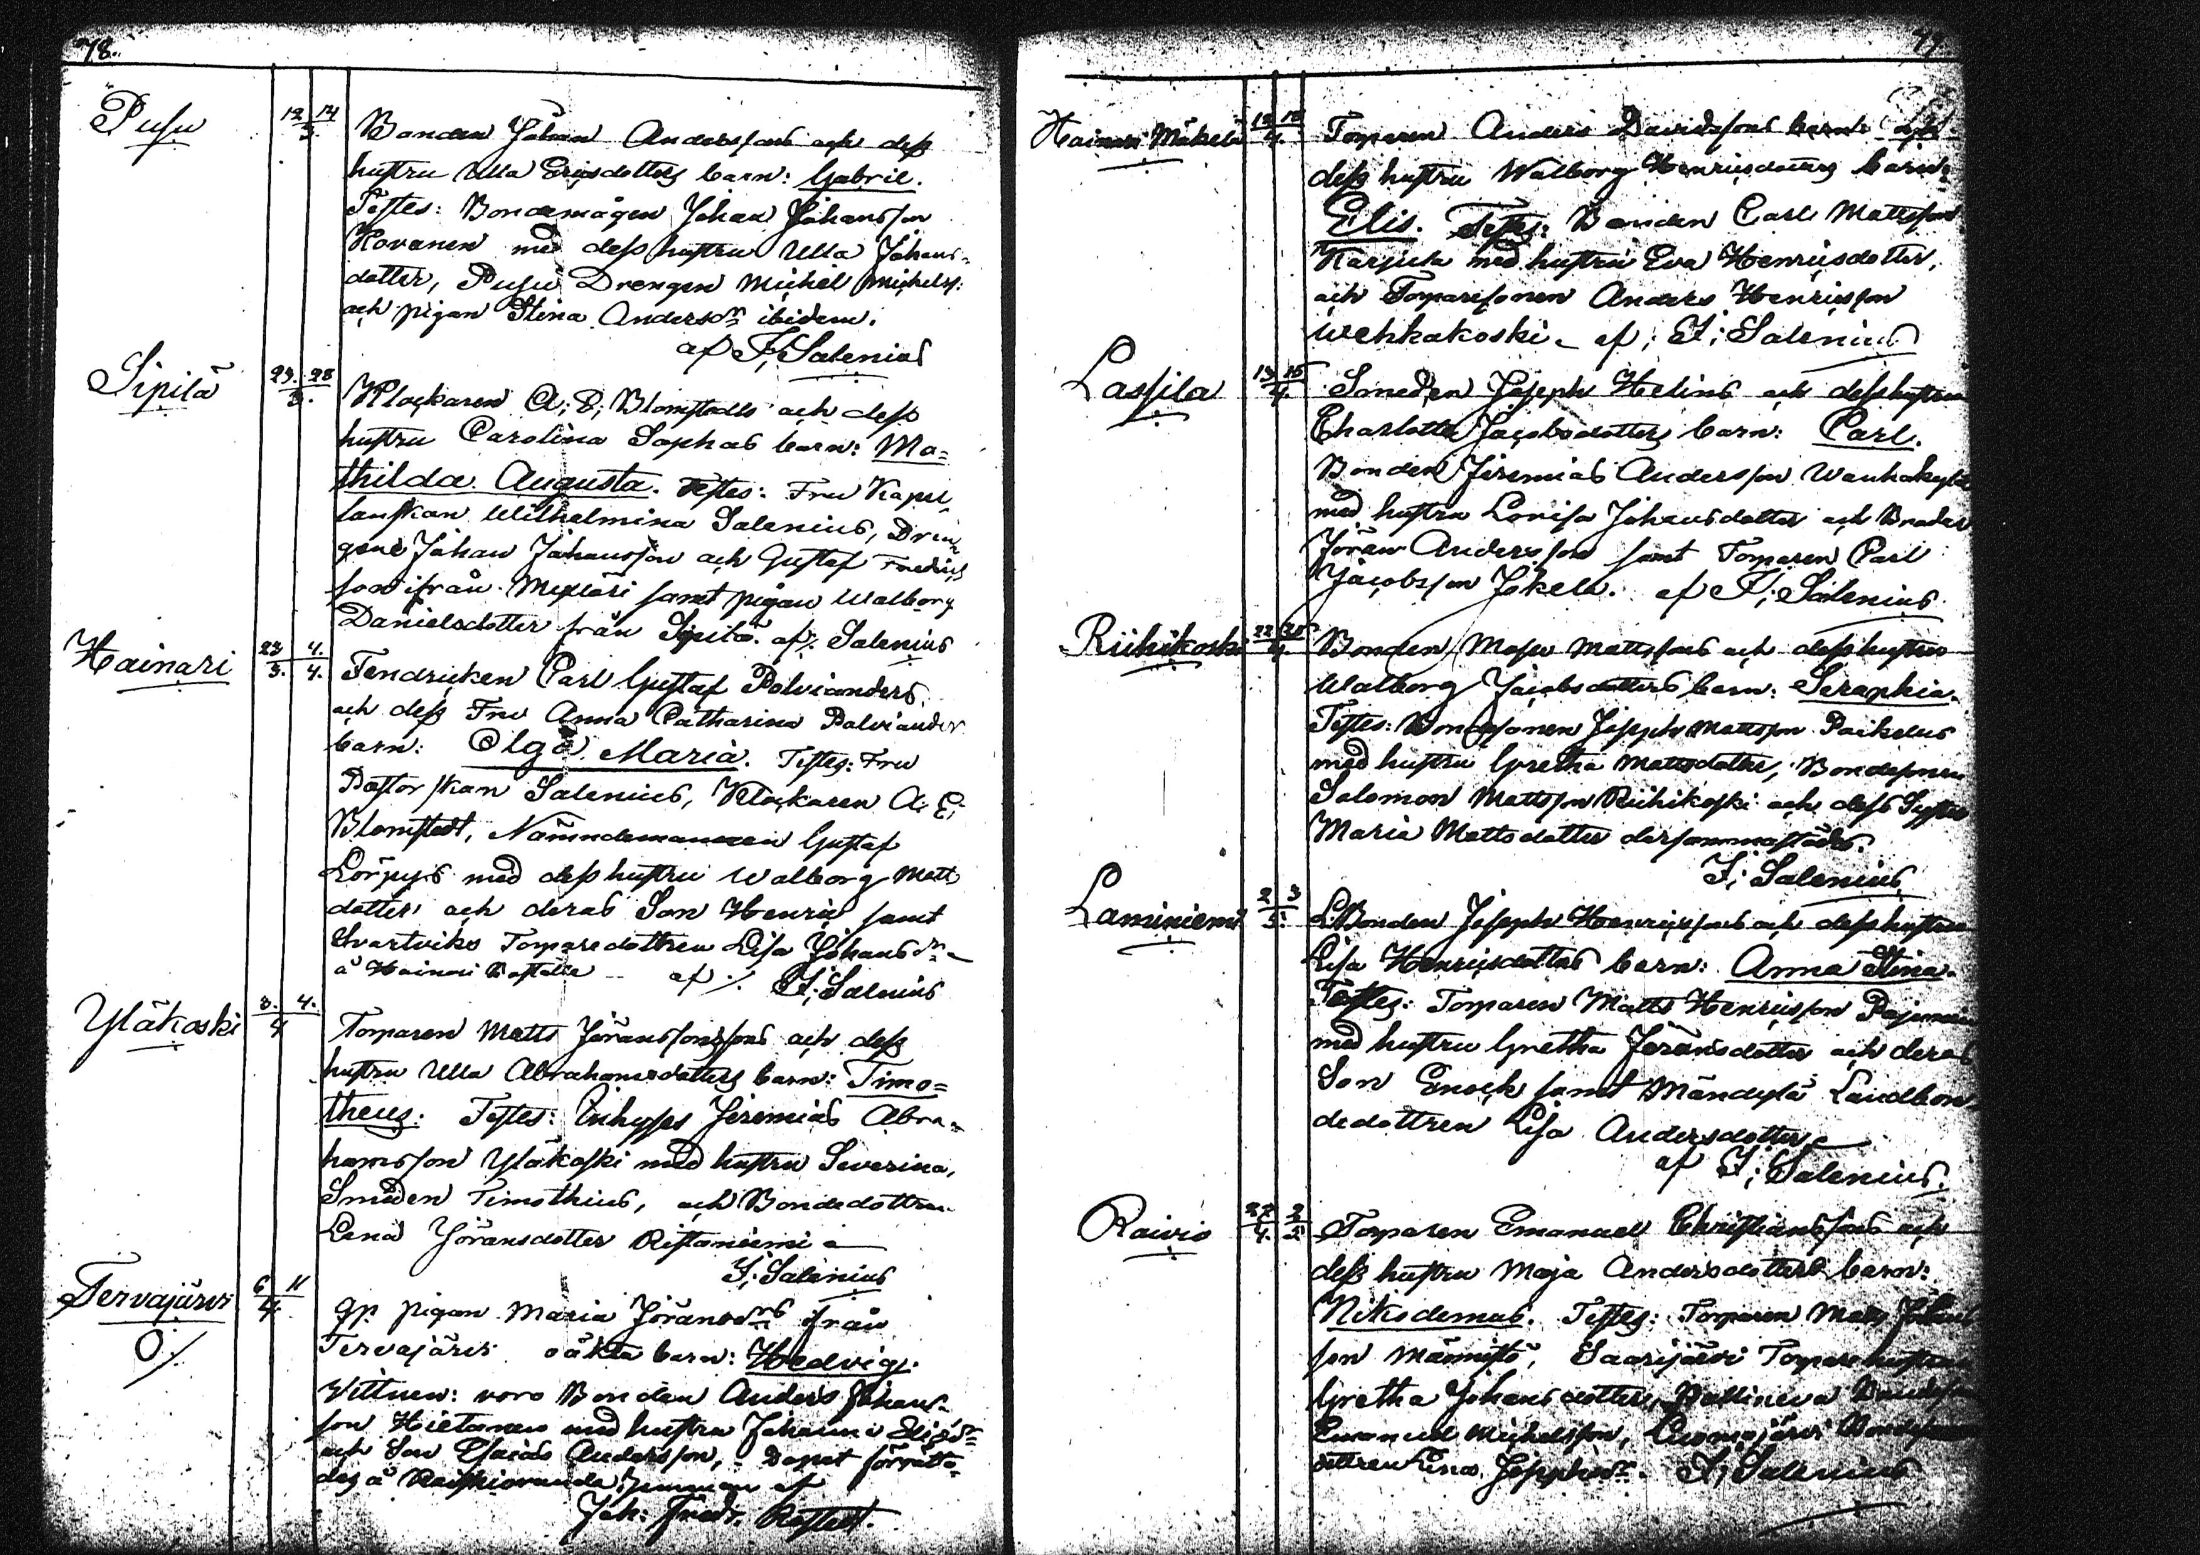 78.
Pusu 12 14
3.
Bonden Johan Anderssons och dess
hustru Ulla Ericsdotters barn: Gabriel.
Testes: Bondemågen Johan Johansson
Kovanen med dess hustru Ulla Johans-
dotter, Pusu Drengen Michel Michelss:
och pigan Stina Andersdr ibidem.
af F; Salenius
Sipilä 23. 28
3.
Klockaren A; E; Blomstedts och dess
hustru Carolina Sophas barn: Ma=
thilda Augusta. Testes: Fru Kapel
lanskan Wilhelmina Salenius, Dren
gene Johan Johansson och Gustaf Fredrics
son ifrån samt pigan Walborg
Danielsdotter från Sipilä. af. Salenius
Hainari 23 4.
3. 4.
Fendricken Carl Gustaf Polvianders
och dess Fru Anna Catharina Polviander
barn: Olga Maria. Testes: Fru
Pastorskan Salenius, Klockaren A. E.
Blomstedt, Nämndemannen Gustaf
Lörpys med dess hustru Walborg Matts
dotter och deras Son Henric samt
Svartviks Torparedottren Lisa Johansdr
å Hainari Boställe af ./. F; Salenius
Yläkoski 3. 4.
4
Torparen Matts Jöranssonssons och dess
hustru Ulla Abrahamsdotters barn: Timo=
theus: Testes: Inhyses Jeremias Abra-
hamsson Yläkoski med hustru Severina,
Smeden Timothéus, och Bondedottren
Lena Jöransdotter Ristaniemi
F; Salenius
Tervajärvi 6 11
4.
O./.
gp. pigan Maria Jöransdrs från
Tervajärvi oäkta barn: Hedvig.
Vittnen: voro Bonden Anders Johans-
son Hietanen med hustru Johanna
och Son Esaias Andersson, Dopet förrätta-
des å af
Joh: Fredr. Rostedt.
Hainari Mäkelä 12 15
4.
Torparen Anders Davidssons barn och
dess hustru Walborg Henricsdotters barn:
Elis. Testes: Bonden Carl Mattsson
Karjula med hustru Eva Henricsdotter,
och Torparesonen Anders Henricsson
Wehkakoski. af; F; Salenius
Lassila 13 15
4.
Smeden Joseph Helins och dess hustru
Charlotta Jacobsdotters barn: Carl.
Bonden Jeremias Andersson Wanhakylä
med hustru Lovisa Johansdotter och Broder
Jöran Andersson samt Torparen Carl
Jacobsson Jokela. af F; Salenius
Riihikoski 22 25
4.
Bonden Moses Mattssons och dess hustru
Walborg Jacobsdotters barn: Seraphia.
Testes: Bondesonen Joseph Mattsson Paikelus
med hustru Gretha Mattsdotter, Bondesonen
Salomon Mattsson Riihikoski och dess Syster
Maria Mattsdotter dersammastädes.
F; Salenius
Laminiemi 2 3
5.
LBonden Joseph Henricssons och dess hustru
Lisa Henricsdotters barn: Anna Stina.
Testes: Torparen Matts Henricsson
med hustru Gretha Jöransdotter och deras
Son Enock samt Mändylä Landbon-
dedottren Lisa Andersdotter
af F; Salenius.
Raivio 27 2
4. 5
Torparen Emanuel Christianssons och
dess hustru Maja Andersdotters barn:
Nikodemus. Testes: Torparen Matts Johans
son Männistö, Saarijärvi Torparehustrun
Gretha Johansdotter,
Emanuel Michelsson,
dottren Lena Josephsdr. F; Salenius